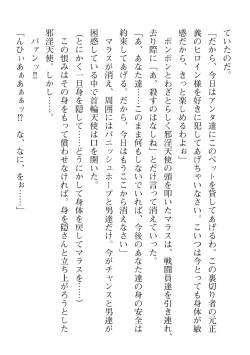 ていたのだ。
「だから、今日はアンタ達にこのペットを貸してあげるわ。この裏切り者の元正
義のヒロイン様を好きに犯してあげちゃいなさい。こいつは今とっても身体が敏
感だから、きっと楽しめるわよぉ」
ポンポンとわざとらしく邪淫天使の頭を叩いたマラスは、戦闘員達を引き連れ、
去り際に「あ、殺すのはなしね」とだけ言って消えていった。
「あ、あなた達……このまま何もしないでいれば、今後のあなた達の身の安全は
約束してあげる。だから、今すぐはもうここから消えなさい」
マラスが消え、周囲にはバニッシュホープと男達だけ。今がチャンスと男達が
困惑している中で首輪天使は口を開いた。
（とにかく一旦身を隠して……どうにかして身体を戻してマラスを……）
この恨みはその身をもって償わせなければ。身を隠さんと立ち上がろうとした
邪淫天使。しかし……。
バァンッ!!
「んひぃあぁあぁぁッ!?　な、なに、をぉ……」